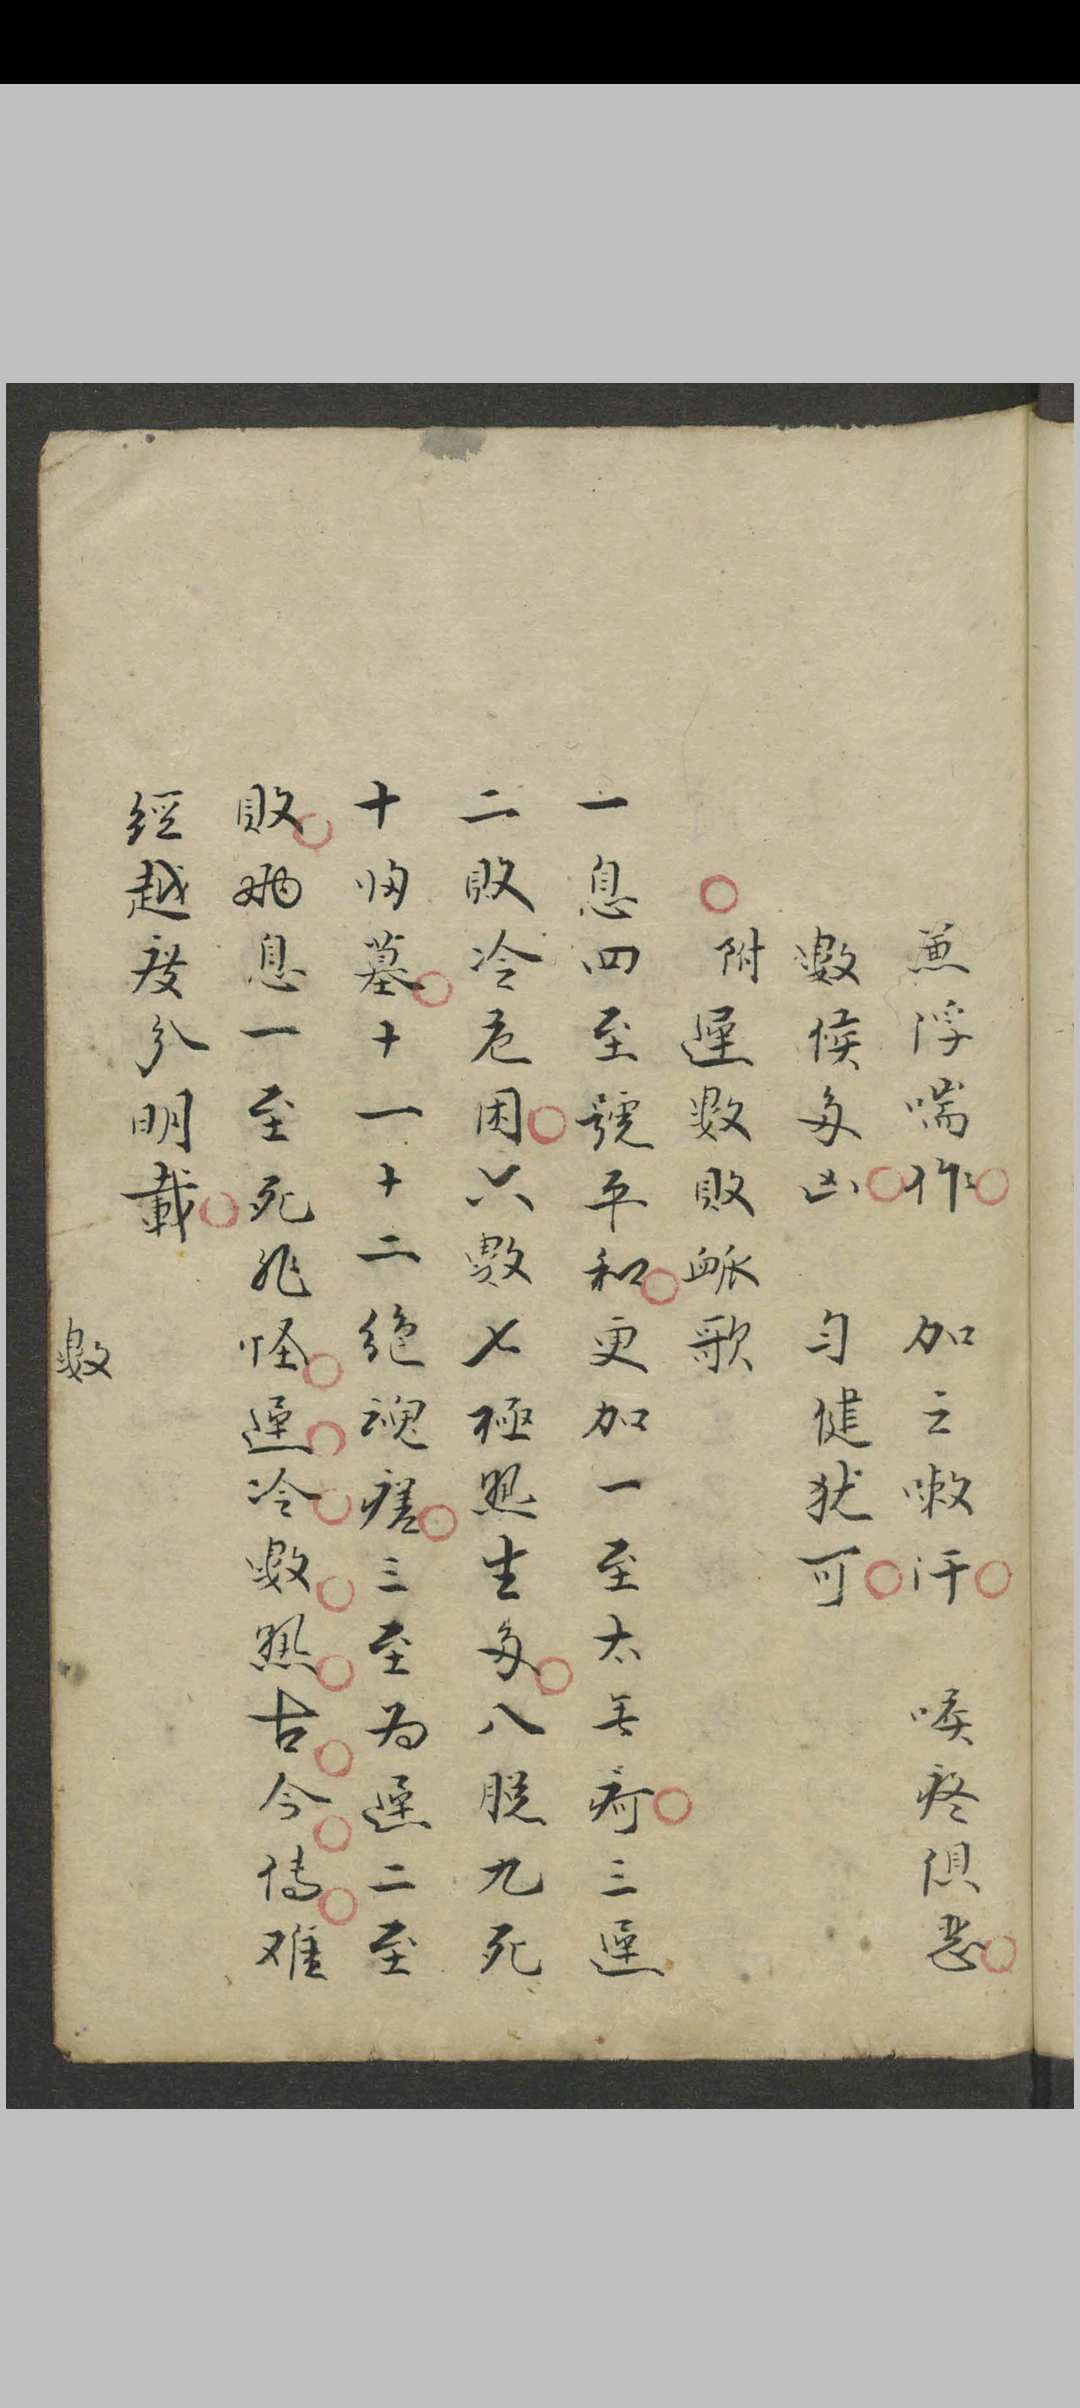 兼浮喘作 加之嗽汗 喉疼俱惡
數候多凶 匀健犹可
附遲數敗脈歌
一息四至號平和更加一至太無疴三遲
二敗冷危困六數七極熱生多八脫九死
十歸墓十一十二絕魂瘥三至為遲二至
敗兩息一至死非怪遲冷數熱古今傳难
經越度分明載
數